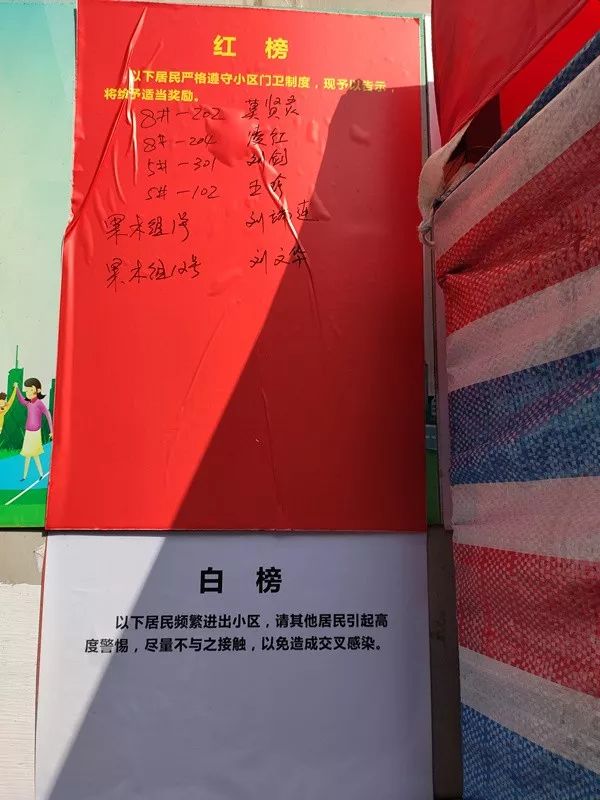 红 榜
以下居民严格遵守小区门卫制度，现予以告示，
将给予适当奖励。
8#-202 莫贤云
8#-204 凌红
5#-301 刘剑
5#-102 王玲
果木组1号 刘瑞连
果木组12号 刘文华
白 榜
以下居民频繁进出小区，请其他居民引起高
度警惕，尽量不与之接触，以免造成交叉感染。